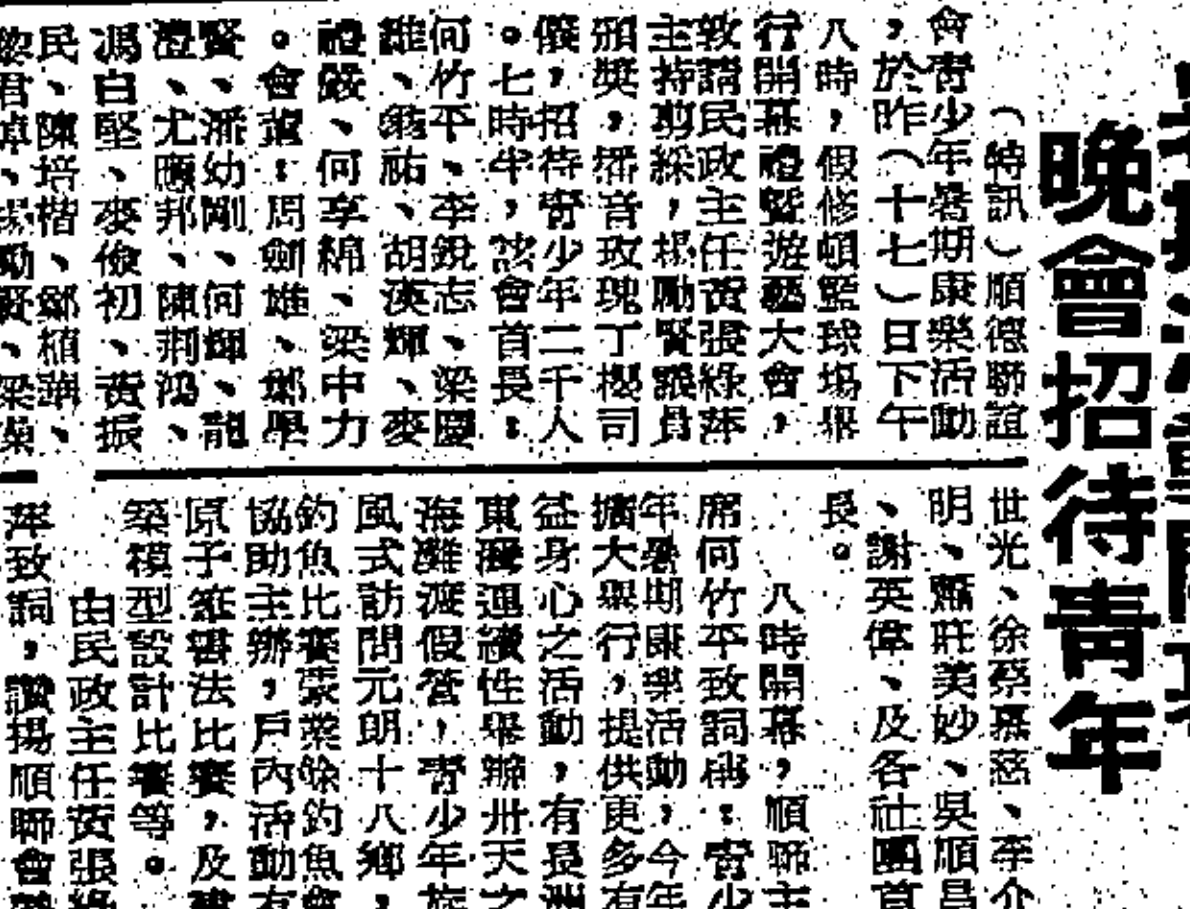 晚會招待青年
（特訊）順德聯誼
會青少年暑期康樂活動
，於昨（十七）日下午
八時，假修頓籃球場舉
行開幕禮暨遊藝大會，
敦請民政主任黃張綠萍
主持剪綵，楊勵賢議員
頒獎，播音玫瑰丁櫻司
儀，招待青少年二千人
。七時半，該會首長：
何竹平、李銳志、梁慶
雄、翁祐、胡漢輝、麥
禮嚴、何享綿、梁中力
。會董：周劍雄、鄭學
賢、潘幼剛、何輝、龍
澧、尤應邦、陳荆鴻、
馮白堅、麥儉初、黃振
民、陳培楷、鄒植謀、
黎君倬、楊勵賢、梁
世光、徐蔡慕慈、李介
明、蕭莊美妙、吳順昌
、謝英偉、及各社團首
長。
八時開幕，順聯主
席何竹平致詞稱：青少
年暑期康樂活動，今年
擴大舉行，提供更多有
益身心之活動，有長洲
東灣連續性舉辦卅天之
海灘渡假營，青少年旅
風式訪問元朗十八鄉，
釣魚比賽蒙業餘釣魚會
協助主辦，戶內活動有
原子筆書法比賽，及建
築模型設計比賽等。
由民政主任黃張綠
萍致詞，讚揚順聯會